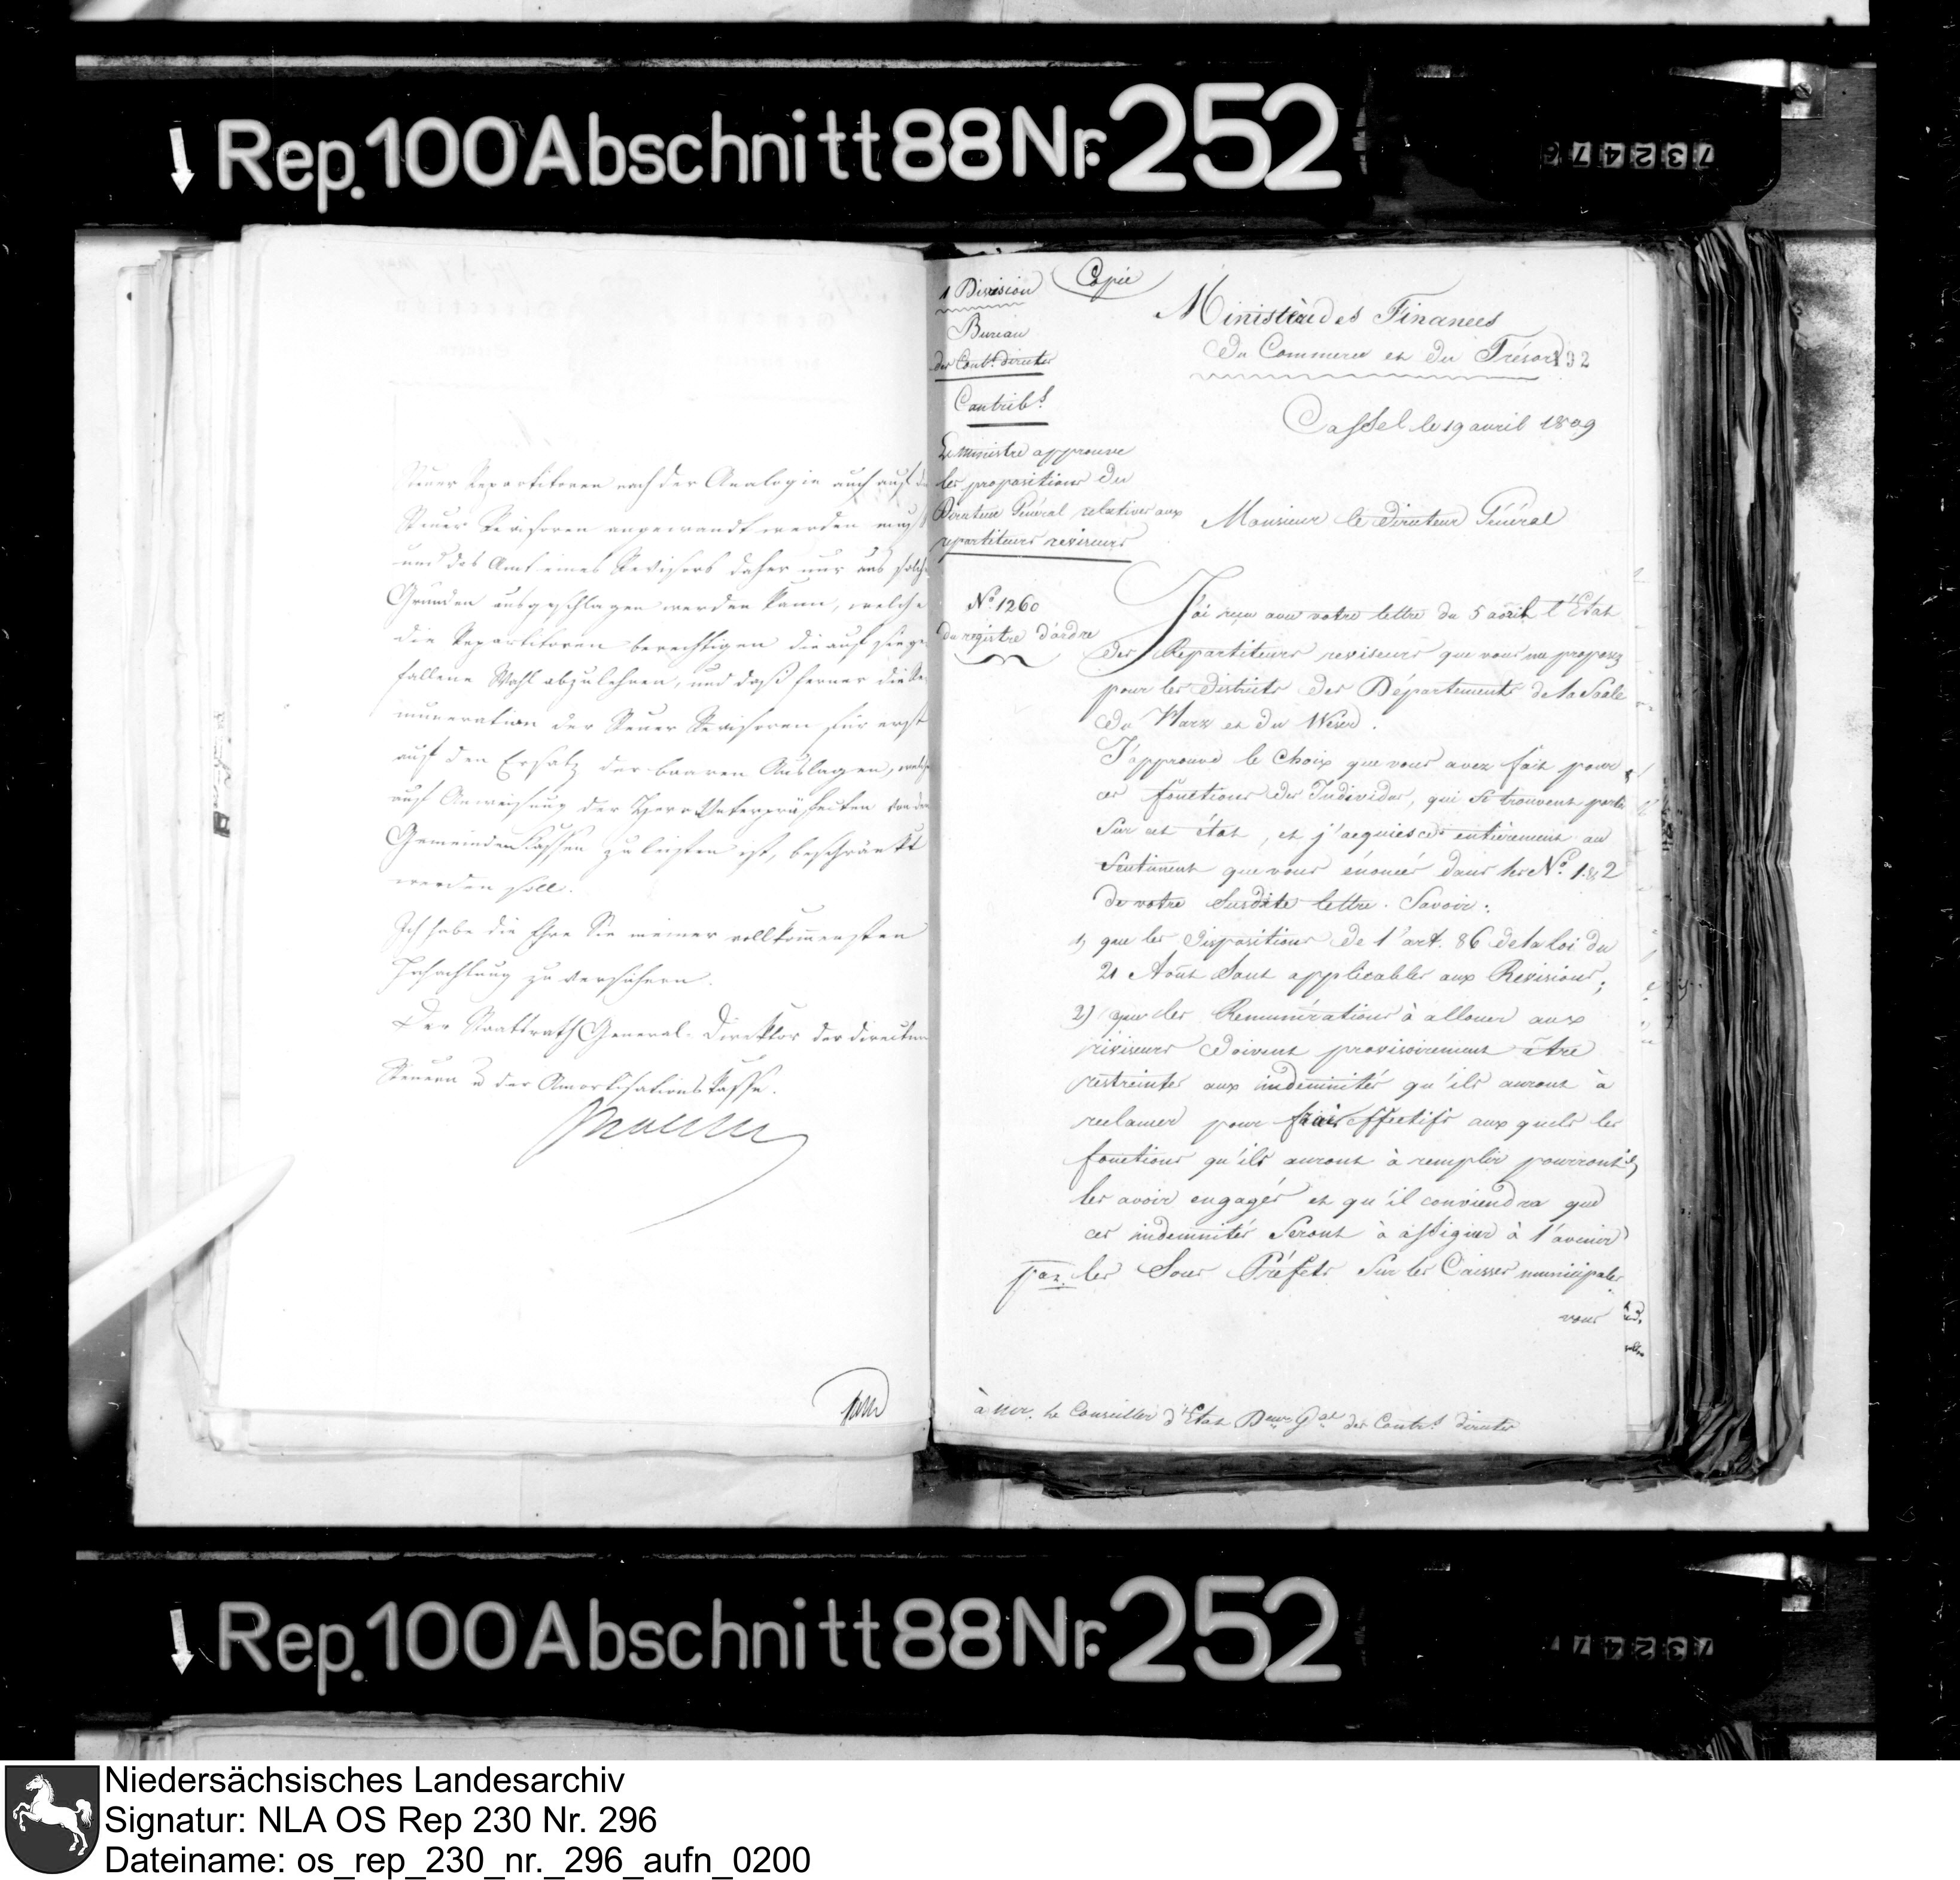 Rep. 100 Abschnitt 88 Nr. 252
732476
Steuer Repartitoren nach der Analogie auch auf die
Steuer Revisoren angewandt werden muß
und das Amt eines Revisors daher nur aus solchen
Gründen ausgeschlagen werden kann, welche
die Repartitoren berechtigen die auf sie ge-
fallene Wahl abzulehnen, und daß ferner die Re-
muneration der Steuer Revisoren für erst
auf den Ersatz der baaren Auslagen, welche
auf Anweisung der Herrn Unterpräfecten von den
Gemeinden Kassen zu leisten ist, beschränkt
werden soll.
Ich habe die Ehre Sie meiner vollkommensten
Hochachtung zu versichern.
Der Staatsrath General-Direktor der directen
Steuern u der Amortisations Kasse.
1 Division
Copie
Bureau
des Contr. directes
Contribs.
Le ministre approuve
les propositions du
Directeur Général relatives aux
repartiteurs reviseurs
No. 1260
du registre d'ordre
Ministère des Finances
du Commerce et du Trésor
132
Cassel le 19 avril 1809
Monsieur le Directeur Général
J'ai reçu avec votre lettre du 5 avril l'Etat
des Repartiteurs reviseurs que vous me proposez
pour les districts des Départements de la Saale
du Harz et du Weser.
J'approuve le choix que vous avez fait pour
ces fonctions des Individus, qui se trouvent portés
sur cet état, et j'acquiesce entièrement au
sentiment que vous énoncés dans les No. 1 & 2
de votre susdite lettre. Savoir:
1) que les dispositions de l'art. 86 de la loi du
21 Août sont applicables aux Revisions;
2) que les Remunérations à allouer aux
reviseurs doivent provisoirement être
restreintes aux indemnités qu'ils auront à
reclamer pour frais effectifs aux quels les
fonctions qu'ils auront à remplir pourront
les avoir engagés et qu'il conviendra que
ces indemnités seront à assigner à l'avenir
par les Sous Préfets sur les Caisses municipales
vous
à Mr. le Conseiller d'Etat Deur Gal des Contrs. directes
Rep. 100 Abschnitt 88 Nr. 252
73247
Niedersächsisches Landesarchiv
Signatur: NLA OS Rep 230 Nr. 296
Dateiname: os_rep_230_nr._296_aufn_0200